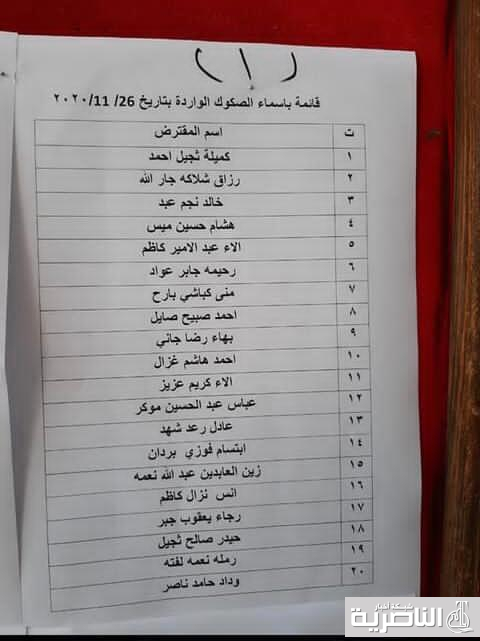 ( ١ )
قائمة باسماء الصكوك الواردة بتاريخ 26/ 11/ ٢٠٢٠
ت اسم المقترض
١ كميلة ثجيل احمد
٢ رزاق شلاكه جار الله
٣ خالد نجم عبد
٤ هشام حسين ميس
٥ الاء عبد الامير كاظم
٦ رحيمه جابر عواد
٧ منى كباشي بارح
٨ احمد صبيح صايل
٩ بهاء رضا جاني
١٠ احمد هاشم غزال
١١ الاء كريم عزيز
١٢ عباس عبد الحسين موكر
١٣ عادل رعد شهد
١٤ ابتسام فوزي بردان
١٥ زين العابدين عبد الله نعمه
١٦ انس نزال كاظم
١٧ رجاء يعقوب جبر
١٨ حيدر صالح ثجيل
١٩ رمله نعمه لفته
٢٠ وداد حامد ناصر
شبكة أخبار
الناصرية